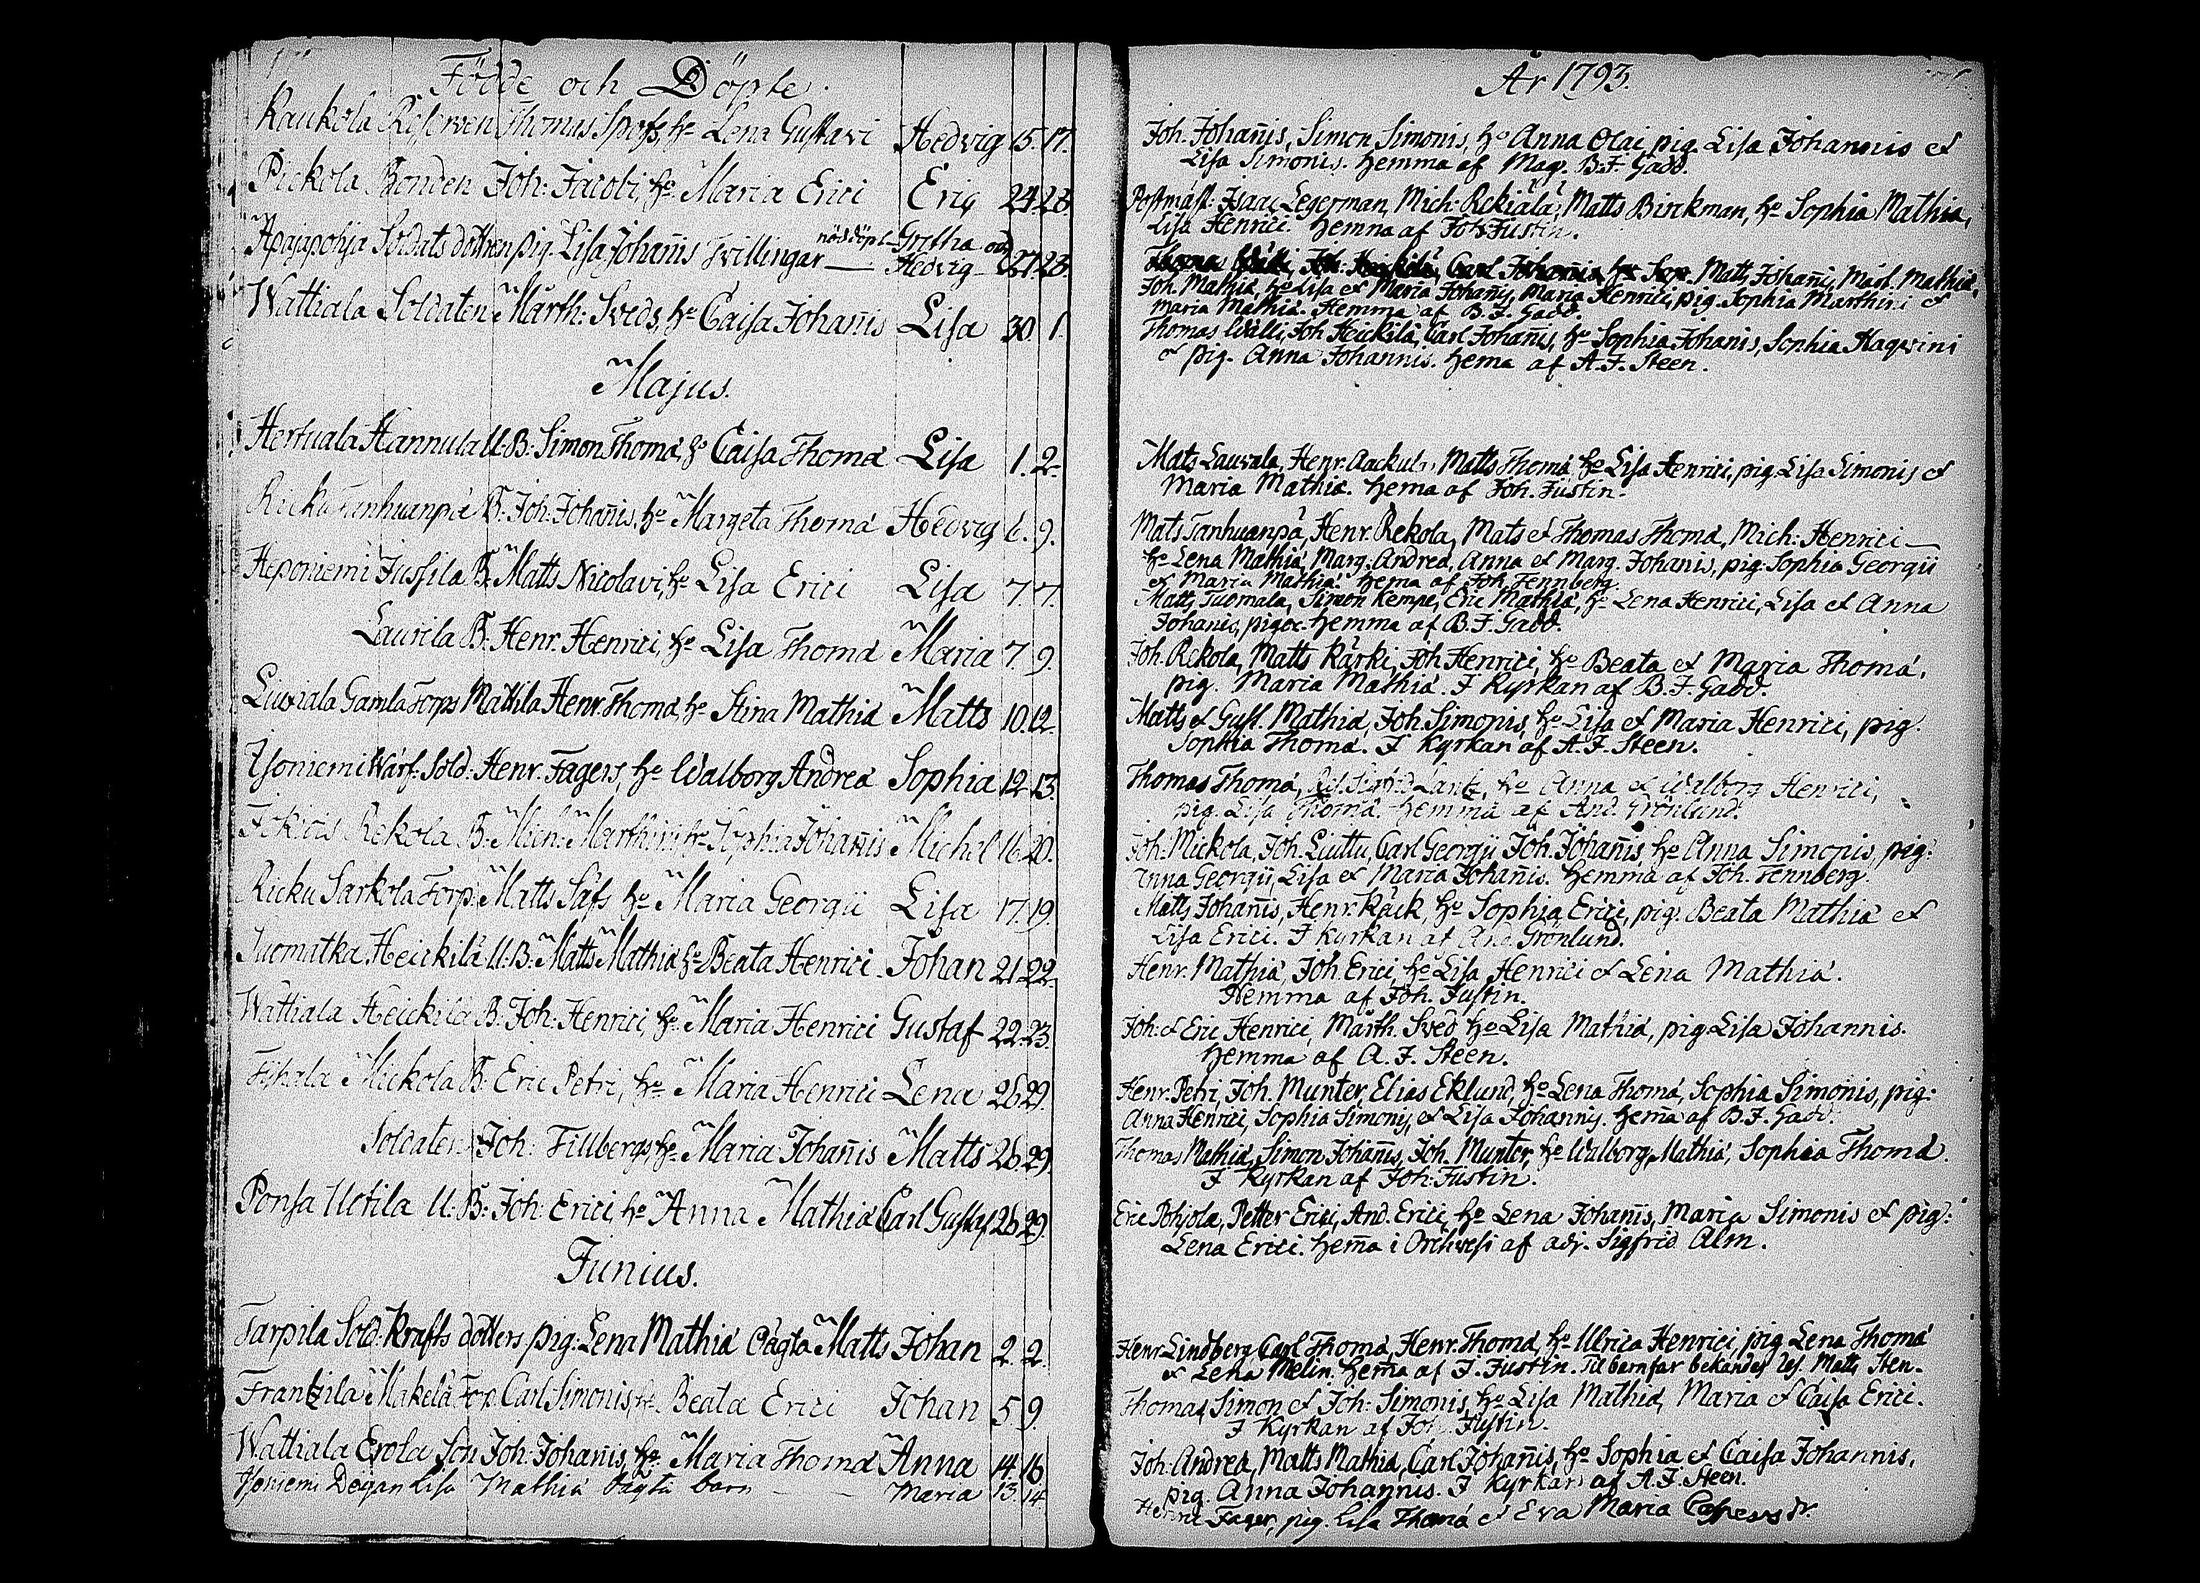 Födde och Döpte.
Raukola Reserven Thomas Spofs, ho Lena Gustavi Hedvig 15. 17.
Pickola Bonden Joh: Jacobi, ho Maria Erici Eric 24. 28.
Apajapohja Soldats dottren pig. Lisa Johan̄is Tvillingar nöddöpt Gretha och
Hedvig 27. 28.
Wattiala Soldaten Marth: Sveds, ho Caisa Johan̄is Lisa 30. 1.
Majus.
Hertuala Hannula U. B: Simon Thomæ, ho Caisa Thomæ Lisa 1. 2.
Ricku Tanhuanpä B. Joh: Johan̄is, ho Margeta Thomæ Hedvig 9.
Heponiemi Jussila B. Matts Nicolavi, ho Lisa Erici Lisa 7. 7.
Laurila B. Henr. Henrici, ho Lisa Thomæ Maria 7. 9.
Liuxiala Gamla Torps Mattila Henr. Thomæ, ho Stina Mathiæ Matts 10. 12.
Isoniemi Warf. Sold: Henr. Fagers, ho Walborg Andreæ Sophia 12. 13.
Rekola B. Mich: Marthini ho Sophia Johan̄is Michel 16. 20.
Ricku Sarkola Torp: Matts Säfs ho Maria Georgii Lisa 17. 19.
Tuomatka Heickilä U. B. Matts Mathiæ ho Beata Henrici Johan 21. 22.
Wattiala Heickilä B. Joh: Henrici, ho Maria Henrici Gustaf 22. 23.
Tihala Mickola B. Eric Petri, ho Maria Henrici Lena 26. 29.
Soldaten Joh: Tillbergs ho Maria Johan̄is Matts 26. 29.
Ponsa Uotila U. B. Joh: Erici, ho Anna Mathiæ Carl Gustaf 26. 29.
Junius.
Tarpila Sold: Krafts dotters, pig: Lena Mathiæ Oägta Matts Johan 2. 2.
Frantzila Makelä Torp. Carl Simonis, ho Beata Erici Johan 5. 9.
Wattiala Erola Son Joh: Johan̄is, ho Maria Thomæ Anna 14. 16.
Isoniemi Dejan Lisa Mathiæ oägta barn Maria 13. 14.
År 1793.
Joh. Johan̄is, Simon Simonis, ho Anna Olai, pig. Lisa Johannis et
Lisa Simonis. hemma af Mag. B. F. Gadd.
Postmäst: Isaac Legerman, Mich: Rekiälä, Matts Birckman, ho Sophia Mathiæ,
Lisa Henrici. hemma af Joh. Justin.
Matts Johan̄i, Mart. Mathiæ,
Joh. Mathiæ, ho Lisa et Maria Johan̄is, Maria Henrici, pig. Sophia Marthini et
Maria Mathiæ. Hemma af B. F. Gadd.
Thomas Wälli, Joh Heickilä, Carl Johan̄is, ho Sophia Johanis, Sophia Hagerini
et pig. Anna Johannis. hema af A. F. Steen.
Mats Laurala, Henr. Matts Thomæ ho Lisa Henrici, pig. Lisa Simonis et
Maria Mathiæ. hema af Joh. Justin.
Mats Tanhuanpä, Henr. Rekola, Mats et Thomas Thomæ, Mich: Henrici
ho Lena Mathiæ, Marg. Andreæ, Anna et Marg. Johanis, pig. Sophia Georgii
et Maria Mathiæ. hema af Joh. Tennberg.
Matts Tuomala, Simon Kempe, Eric Mathiæ, ho Lena Henrici, Lisa et Anna
Johanis, pigor. hemma af B. F. Gadd.
Joh. Rekola, Matts Kärki, Joh Henrici, ho Beata et Maria Thomæ,
pig. Maria Mathiæ. I Kyrkan af B. F. Gadd.
Matts et Gust. Mathiæ, Joh. Simonis, ho Lisa et Maria Henrici, pig.
Sophia Thomæ. I Kyrkan af A. F. Steen.
Thomas Thomæ, ho Anna et Walborg Henrici,
pig. Lisa Thomæ. hemma af And. Grönlund.
Joh: Mickola, Joh. Liuttu, Carl Georgii Joh. Johan̄is, ho Anna Simonis, pig:
Anna Georgii, Lisa et Maria Johan̄is. hemma af Joh. Tennberg.
Matts Johan̄is, Henr. Räck, ho Sophia Erici, pig: Beata Mathiæ et
Lisa Erici. I Kyrkan af And. Grönlund.
Henr. Mathiæ, Joh. Erici, ho Lisa Henrici et Lena Mathiæ.
Hemma af Joh. Justin.
Joh: et Eric Henrici, Marth. Sved ho Lisa Mathiæ, pig. Lisa Johannis.
hemma af A. F. Steen.
Henr. Petri, Joh. Munter, Elias Eklund, ho Lena Thomæ, Sophia Simonis, pig:
Anna Henrici, Sophia Simonis, et Lisa Johannis. hem̄a af B. F. Gadd.
Thomas Mathiæ, Simon Johan̄is, Joh. Munter, ho Walborg Mathiæ, Sophia Thomæ.
I Kyrkan af Joh: Justin.
Eric Pohjola, Petter Erici, And. Erici, ho Lena Johan̄is, Maria Simonis et pig:
Lena Erici. hem̄a i Orihvesi af adj. Sigfrid Alm.
Henr. Lindberg, Carl Thomæ, Henr. Thomæ, ho Ulrica Henrici, pig. Lena Thomæ
et Lena Melin. hem̄a af J. Justin. Til barnfar bekandes Matts Sten.
Thomas, Simon et Joh: Simonis, ho Lisa Mathiæ, Maria et Caisa Erici.
I Kyrkan af Joh. Justin.
Joh: Andreæ, Matts Mathiæ, Carl Johan̄is, ho Sophia et Caisa Johannis,
pig. Anna Johannis. I Kyrkan af A. F. Steen.
Henric Fager, pig. Lisa Thomæ et Eva Maria Caspersdr.